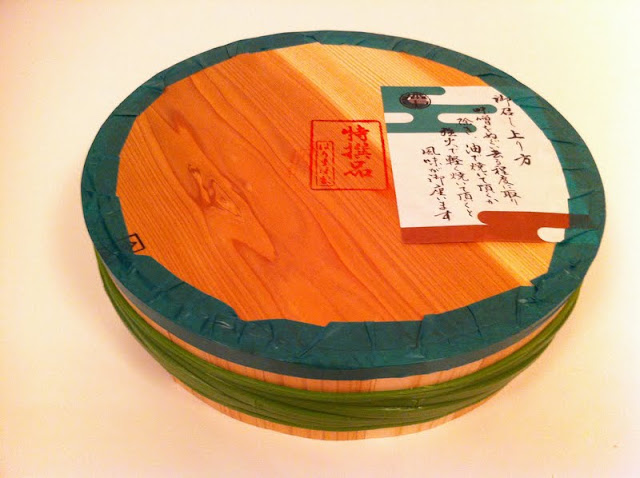 特撰品
御召し上り方
味噌をぬぐい去る程度に取り
除き、油で焼いて頂くか
強火で軽く焼いて頂くと
風味が御座います